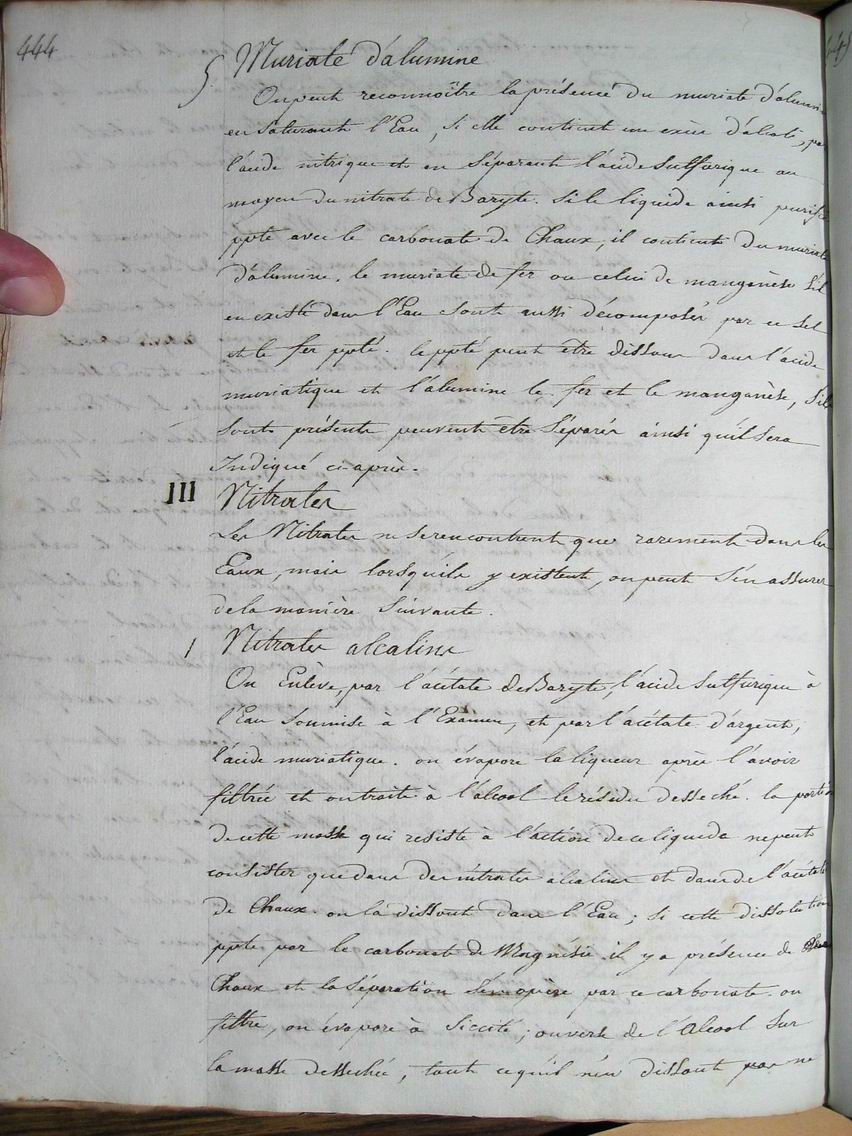 444
5 Muriate d'alumine
On peut reconnoître la présence du muriate d'alumin
en saturant l'Eau, si elle contient un excès d'alcali, pa
l'acide nitrique et en séparant l'acide sulfurique au
moyen du nitrate de Baryte. si le liquide ainsi purifi
ppte avec le carbonate de Chaux, il contient du muriate
d'alumine. le muriate de fer ou celui de manganèse s'il
en existe dans l'Eau sont aussi décomposés par ce sel
et le fer ppté. le ppté peut être dissous dans l'acide
muriatique et l'alumine le fer et le manganèse, s'ils
sont présents peuvent être séparés ainsi qu'il sera
Indiqué ci-après.
III Nitrates
Les Nitrates ne se rencontrent que rarement dans les
Eaux, mais lorsqu'ils y existent, on peut s'en assurer
de la manière suivante.
1 Nitrates alcalins
On Enlève, par l'acétate de Baryte, l'acide sulfurique à
l'Eau soumise à l'Examen, et par l'acétate d'argent,
l'acide muriatique. on évapore la liqueur après l'avoir
filtrée et on traite à l'alcool le résidu desséché. la portion
de cette masse qui résiste à l'action de ce liquide ne peut
consister que dans des nitrates alcalins et dans de l'acétate
de Chaux. on la dissout dans l'Eau ; si cette dissolution
ppte par le carbonate de Magnésie il y a présence de
Chaux et la séparation s'en opère par ce carbonate. on
filtre, on évapore à siccité ; on verse de l'Alcool sur
la masse desséchée, tout ce qu'il n'en dissout pas ne